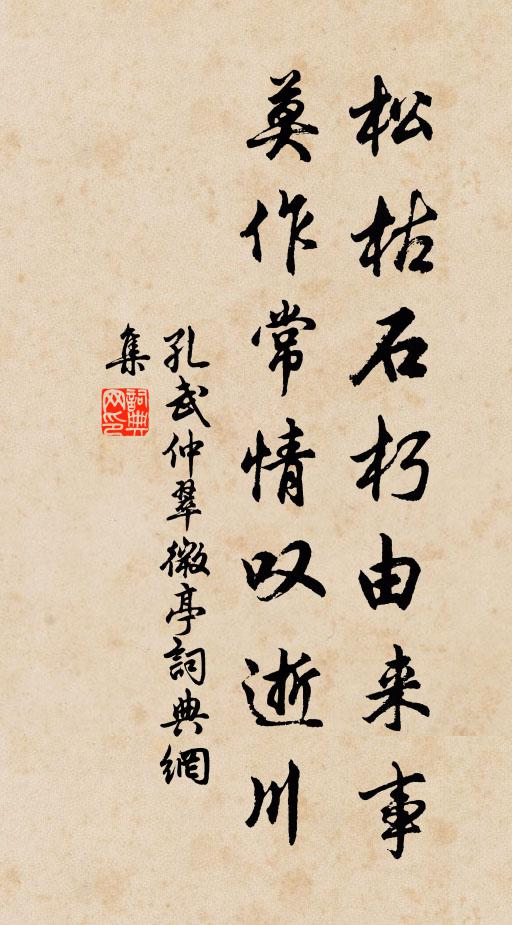 松枯石朽由来事
莫作常情叹逝川
孔武仲翠微亭詞典網
集
詞典網印